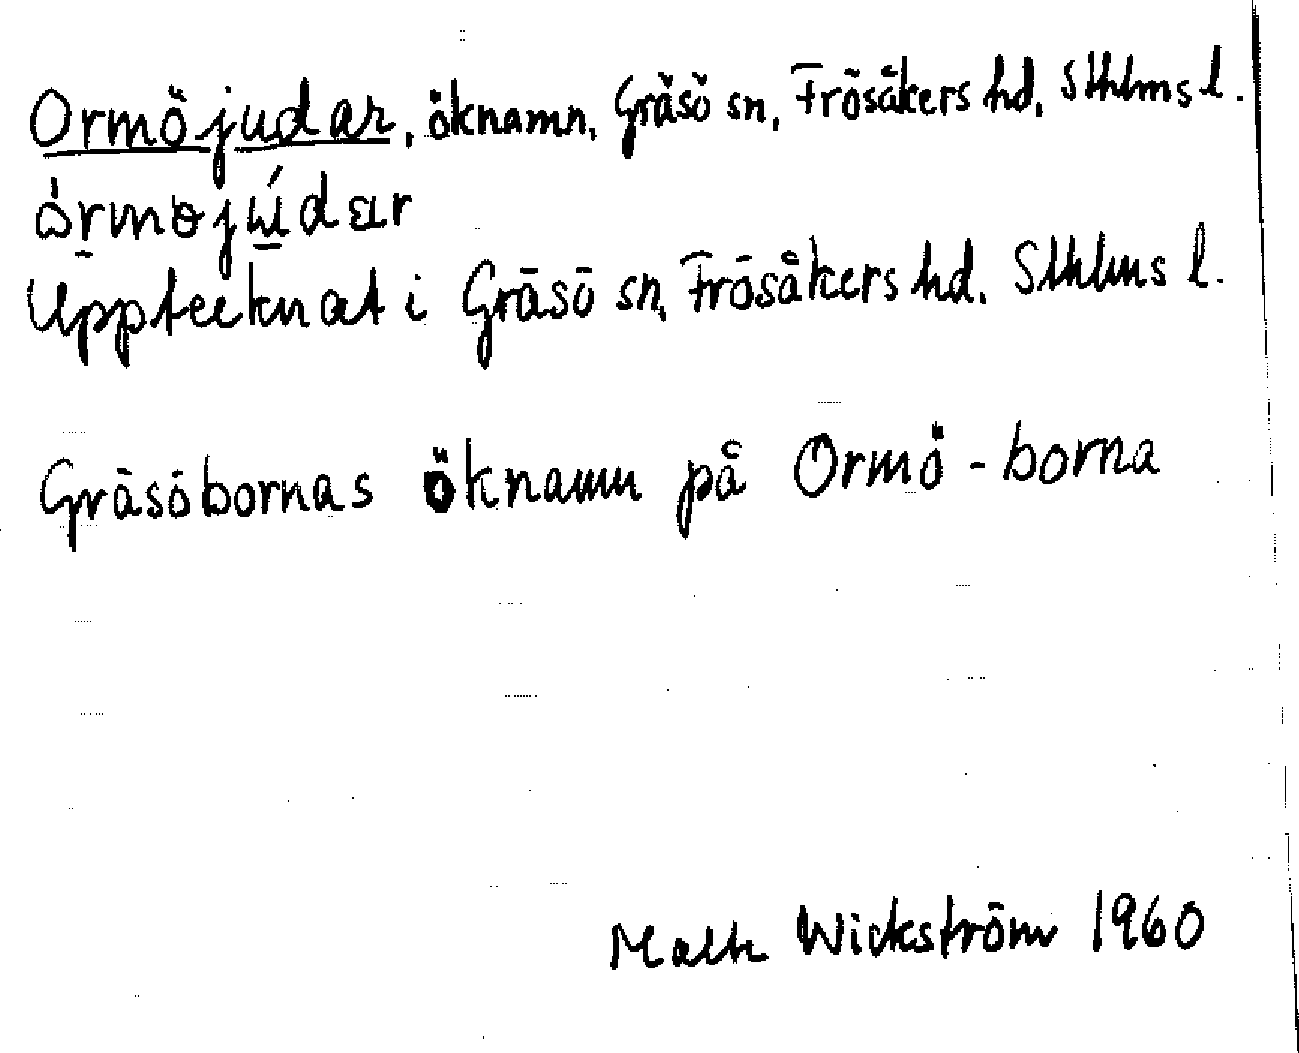 Ormöjudar, öknamn, Gräsö sn, Frösåkers hd, Sthlms l.
Upptecknat i Gräsö sn, Frösåkers hd. Sthlms l.
Gräsöbornas öknamn på Ormö-borna
Wickström 1960